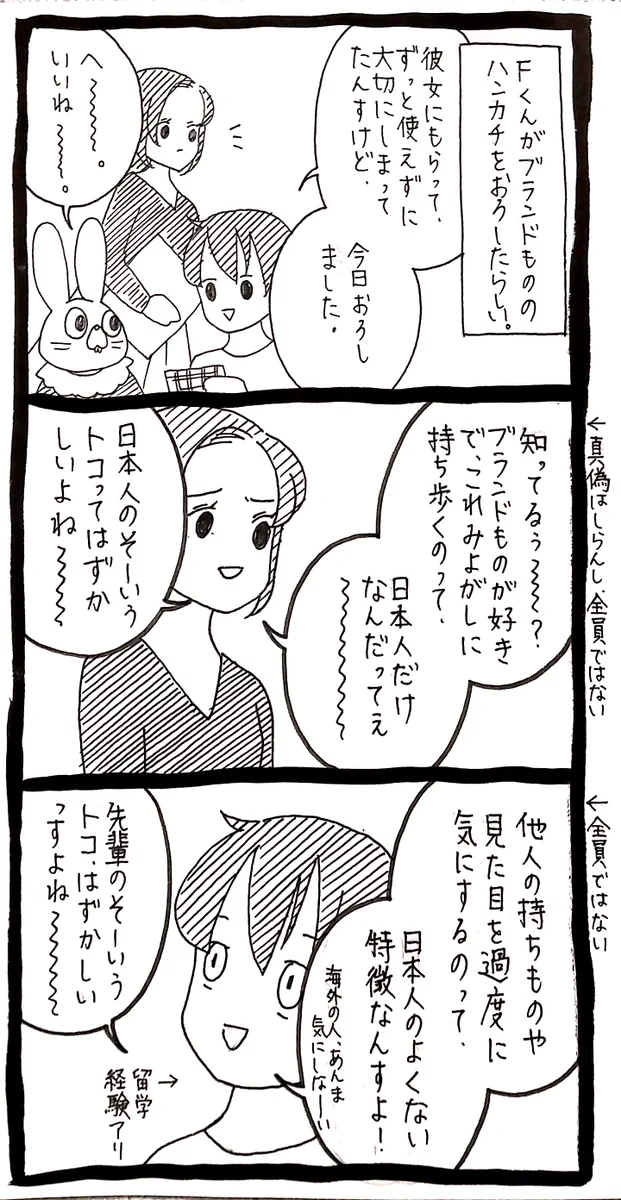 Fくんがブランドものの
ハンカチをおろしたらしい。
彼女にもらって、
ずっと使えずに
大切にしまって
たんすけど、
今日おろし
ました。
へ〜〜〜〜。
いいね〜〜〜〜。
←真偽はしらんし、全員ではない
知ってるぅ〜〜〜?
ブランドものが好き
で、これみよがしに
持ち歩くのって、
日本人だけ
なんだってぇ
〜〜〜〜〜〜
日本人のそーいう
トコってはずか
しいよね〜〜〜〜
←全員ではない
他人の持ちものや
見た目を過度に
気にするのって、
日本人のよくない
特徴なんすよ!
海外の人、あんま
気にしなーい
先輩のそーいう
トコ、はずかしい
っすよね〜〜〜〜
留学→
経験アリ